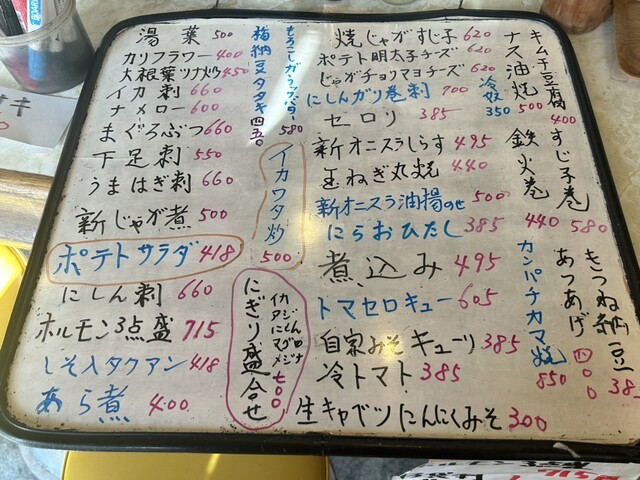 湯葉 500
カリフラワー 400
大根葉ツナ炒 450
イカ刺 660
ナメロー 600
まぐろぶつ 660
下足刺 550
うまはぎ刺 660
新じゃが煮 500
ポテトサラダ 418
にしん刺 660
ホルモン3点盛 715
しそ入タクアン 418
あら煮 400
580
梅納豆タタキ 四五〇
イカワタ炒 500
にぎり盛合せ
七〇〇
焼じゃがすじ子 620
ポテト明太子チーズ 620
じゃがチョリマヨチーズ 620
にしんガリ巻刺 700
セロリ 385
新オニスラしらす 495
玉ねぎ丸焼 440
新オニスラ油揚のせ 500
にらおひたし 385
煮込み 495
トマセロキュー 605
自家みそキューリ 385
冷トマト 385
生キャベツにんにくみそ 300
キムチ豆腐 400
ナス油焼 500
冷奴 350
すじ子巻 580
鉄火巻 440
カンパチカマ焼 850
きつね納豆 385
あつあげ 四〇〇
キ